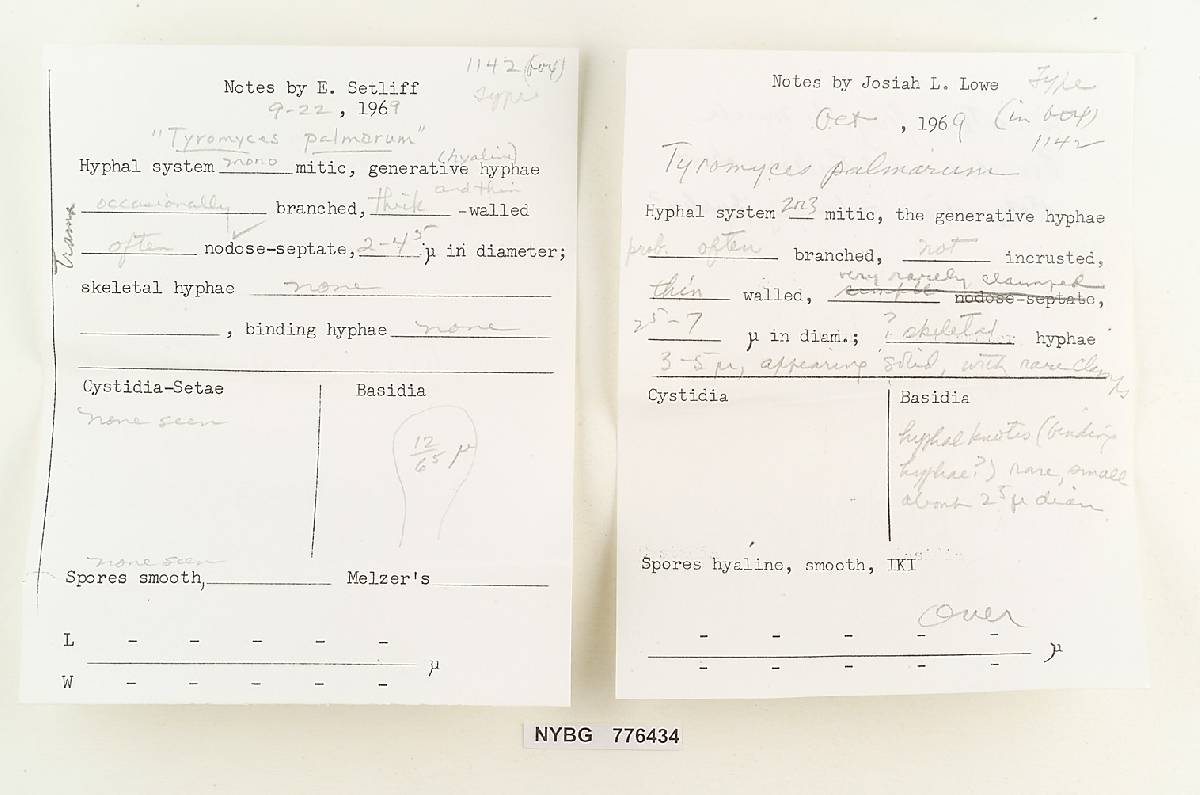 1142 (box)
Notes by E. Setliff
Type
9-22, 1969
"Tyromyces palmarum"
(hyaline)
Hyphal system mono mitic, generative hyphae
and thin
occasionally branched, thick -walled
Trama
often nodose-septate, 2-4⁵ µ in diameter;
skeletal hyphae none
, binding hyphae none
Cystidia-Setae
Basidia
none seen
12
6⁵ µ
none seen
Spores smooth, Melzer's
L - - - - -
µ
W - - - - -
Notes by Josiah L. Lowe Type
Oct, 1969 (in box)
1142
Tyromyces palmarum
Hyphal system 2or3 mitic, the generative hyphae
prob. often branched, not incrusted,
very rarely clamped
thin walled, simple nodose-septate,
2⁵-7 µ in diam.; ? skeletal hyphae
3-5 µ, appearing solid, with rare clamps
Cystidia
Basidia
hyphal knots (binding
hyphae?) rare, small
about 2⁵ µ diam
Spores hyaline, smooth, IKI
Over
- - - - -
µ
- - - - -
NYBG 776434